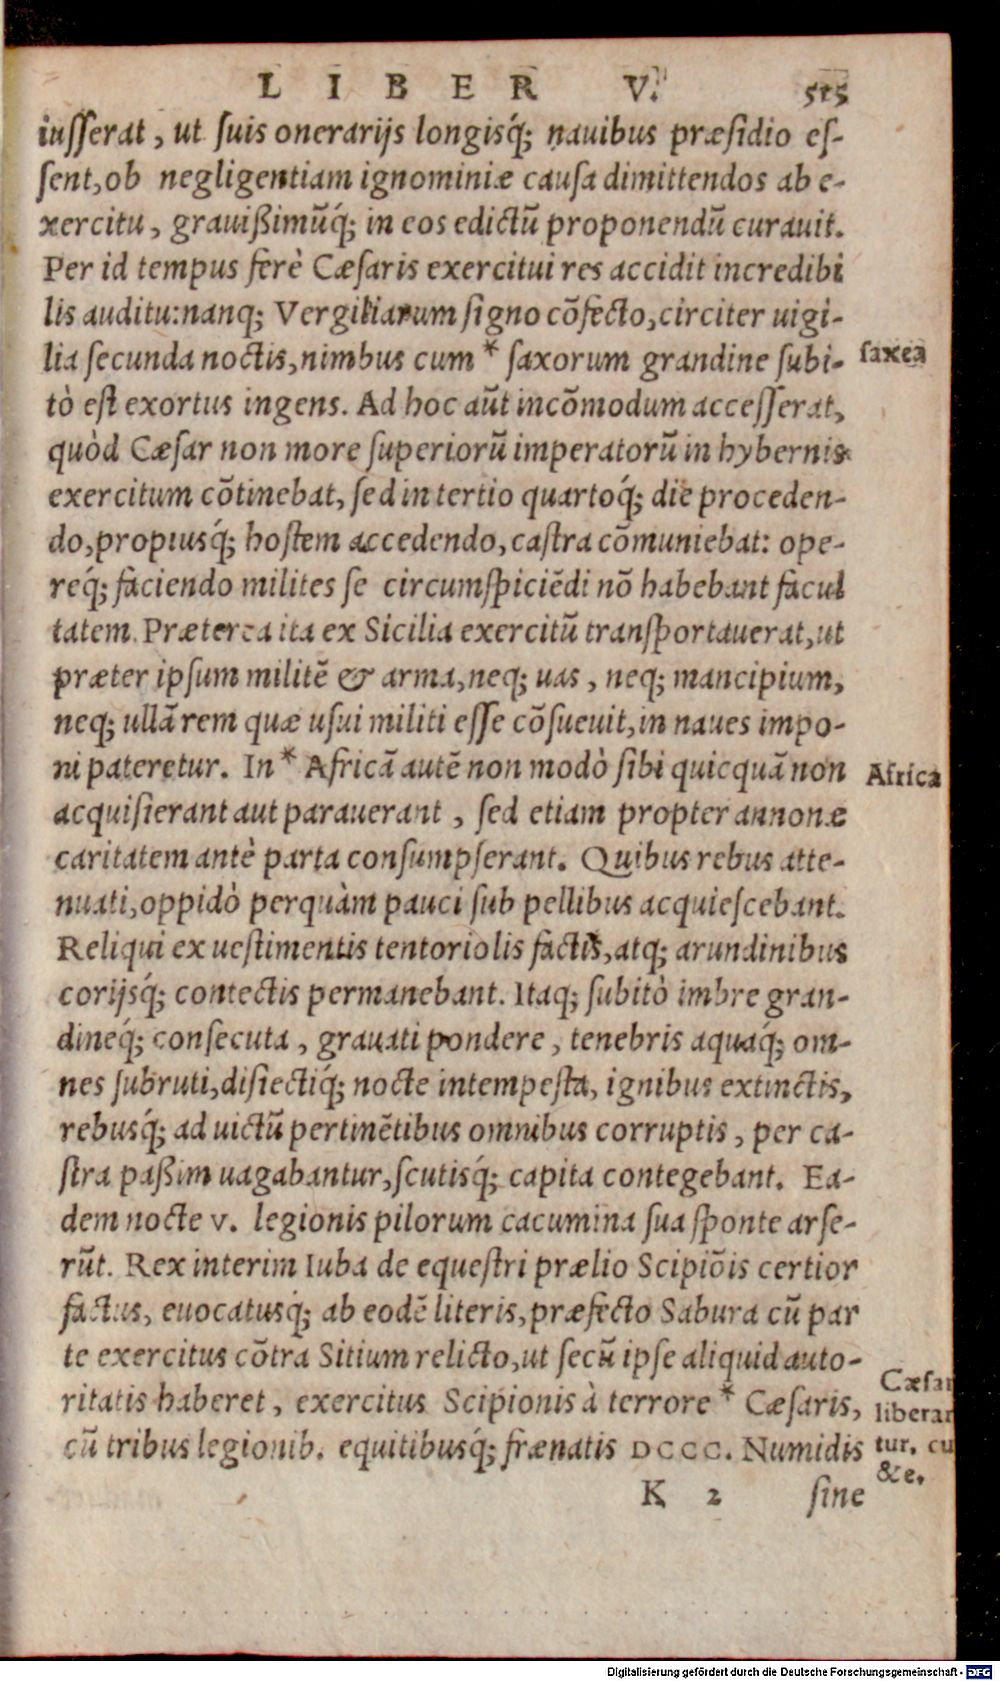 LIBER V. 515
iusserat, ut suis onerarijs longisq́; nauibus præsidio es-
sent, ob negligentiam ignominiæ causa dimittendos ab e-
xercitu, grauißimũq́; in eos edictũ proponendũ curauit.
Per id tempus ferè Cæsaris exercitui res accidit incredibi
lis auditu: nanq; Vergiliarum signo cõfecto, circiter uigi-
lia secunda noctis, nimbus cum * saxorum grandine subi-
saxea
tò est exortus ingens. Ad hoc aũt incõmodum accesserat,
quòd Cæsar non more superiorũ imperatorũ in hybernis
exercitum cõtinebat, sed in tertio quartoq́; die proceden-
do, propiusq́; hostem accedendo, castra cõmuniebat: ope-
req́; faciendo milites se circumspiciẽdi nõ habebant facul
tatem. Præterea ita ex Sicilia exercitũ transportauerat, ut
præter ipsum militẽ & arma, neq; uas, neq; mancipium,
neq; ullã rem quæ usui militi esse cõsueuit, in naues impo-
ni pateretur. In * Africã autẽ non modò sibi quicquã non
Africa
acquisierant aut parauerant, sed etiam propter annonæ
caritatem antè parta consumpserant. Quibus rebus atte-
nuati, oppidò perquàm pauci sub pellibus acquiescebant.
Reliqui ex uestimentis tentoriolis factis, atq; arundinibus
corijsq́; contectis permanebant. Itaq; subitò imbre gran-
dineq́; consecuta, grauati pondere, tenebris aquaq́; om-
nes subruti, disiectiq́; nocte intempesta, ignibus extinctis,
rebusq́; ad uictũ pertinẽtibus omnibus corruptis, per ca-
stra paßim uagabantur, scutisq́; capita contegebant. Ea-
dem nocte v. legionis pilorum cacumina sua sponte arse-
rũt. Rex interim Iuba de equestri prælio Scipiõis certior
factus, euocatusq́; ab eodẽ literis, præfecto Sabura cũ par
te exercitus cõtra Sitium relicto, ut secũ ipse aliquid auto-
ritatis haberet, exercitus Scipionis à terrore * Cæsaris,
cũ tribus legionib. equitibusq́; frænatis DCCC. Numidis
Cæsar
liberar
tur. cu
&c.
K 2 sine
Digitalisierung gefördert durch die Deutsche Forschungsgemeinschaft - DFG